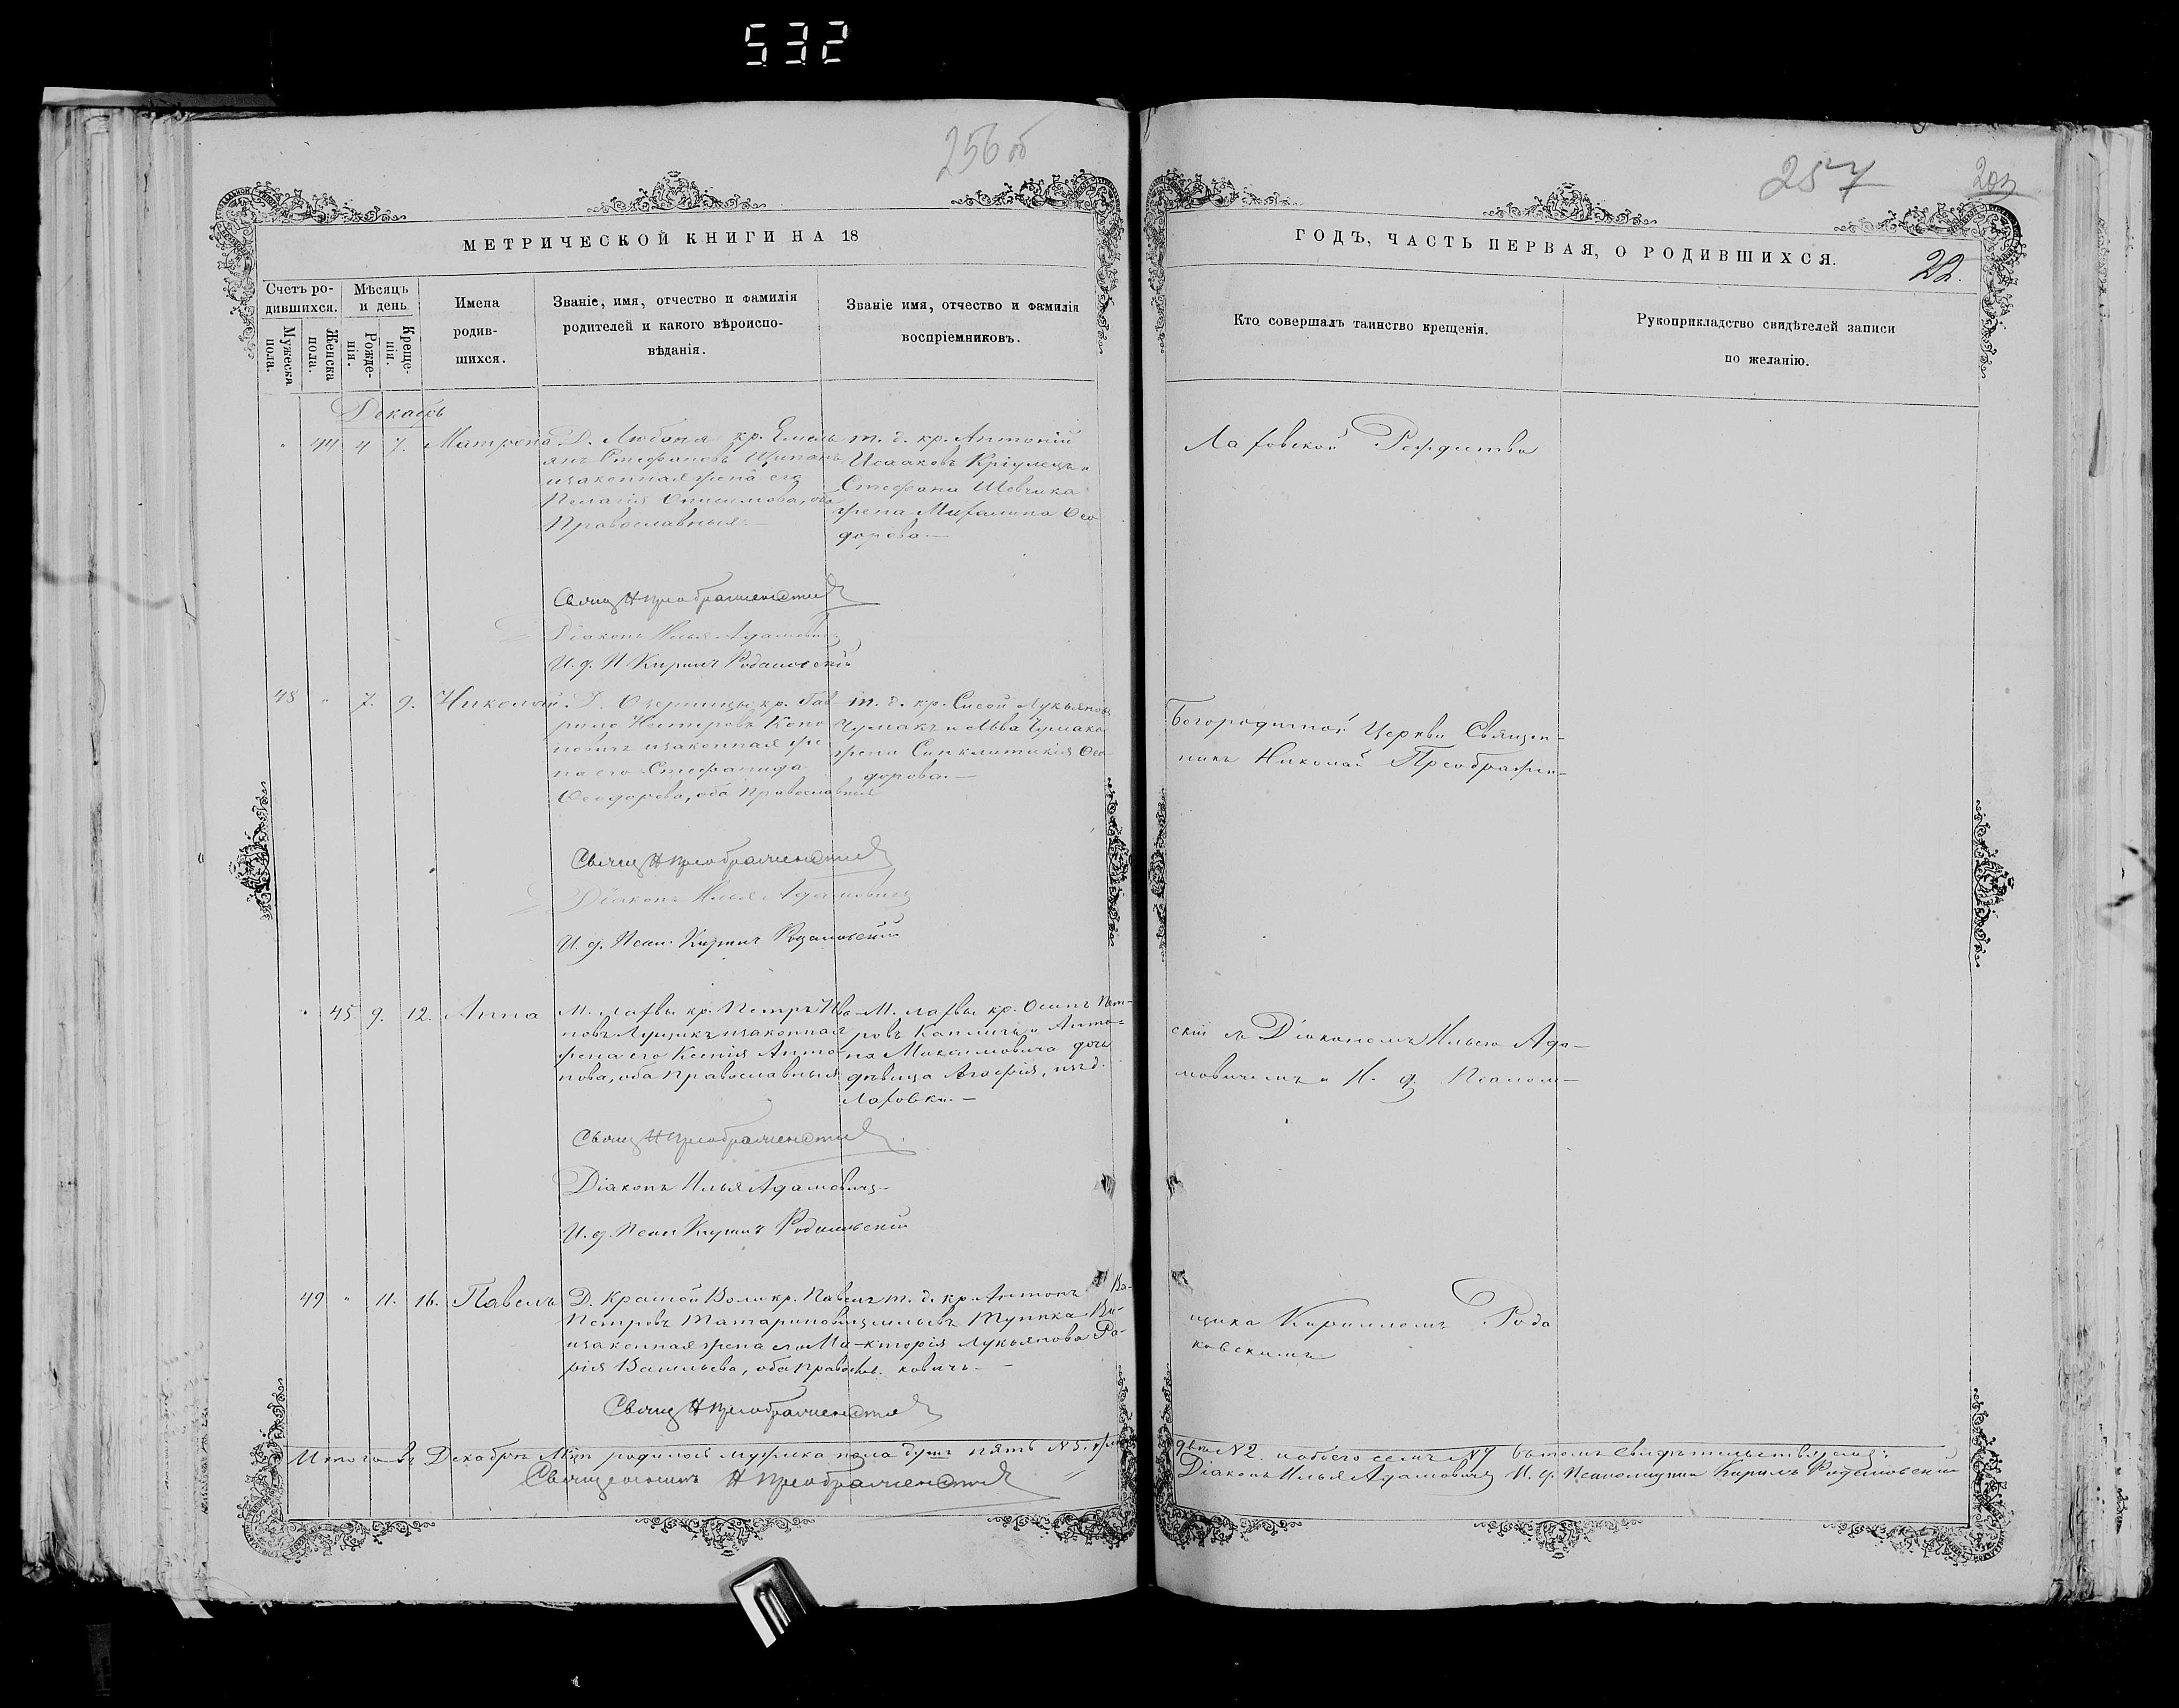 532
256 об
257
МЕТРИЧЕСКОЙ КНИГИ НА 18
ГОДЪ, ЧАСТЬ ПЕРВАЯ, О РОДИВШИХСЯ.
22.
Счетъ ро-
дившихся.
Мужеска
пола.
Женска
пола.
Мѣсяцъ
и день
Рожде-
нія.
Креще-
нія.
Имена
родив-
шихся.
Званіе, имя, отчество и фамилія
родителей и какого вѣроиспо-
вѣданія.
Званіе имя, отчество и фамилія
воспріемниковъ.
Кто совершалъ таинство крещенія.
Рукоприкладство свидѣтелей записи
по желанію.
Декабрь
" 44 4 7. Матрона
Д. Любоня кр. Емель
янъ Стефановъ
и законная жена его
Пелагія Онисимова, оба
Православныя.—
т. д. кр. Антоній
Исааковъ и
Стефана Шевчика
жена Ѳео
дорова.—
Лаховской Рождества
Свящ Н Преображенскій
Діаконъ Илья Адамовичъ
И. д. П Кирилъ Родаковскій
48 " 7. 9. Николай.
Д. Озерницы кр. Гав
рилъ Нестеровъ Коно
новичъ и законная же
на его Стефанида
Ѳеодорова, оба православныя
т. д. кр. Сисой Лукьяновъ
Чумакъ и Льва Чумака
жена Синклитикія Ѳео-
дорова.—
Богородичной Церкви Священ-
никъ Николай Преображен-
Свящ Н Преображенскій
Діаконъ Илья Адамовичъ
И. д. Псал. Кирилъ Родаковскій
" 45 9. 12. Анна
М. Лахвы кр. Петръ Ива-
новъ Лущикъ и законная
жена его Ксенія Анто-
нова, оба православныя
М. Лахвы кр. Осипъ Пет-
ровъ Капличъ и Анто-
на Максимовича дочь
дѣвица Агафія, изъ д.
Лаховки.—
скій съ Діакономъ Ильею Ада-
мовичемъ и И. д. Псалом-
Свящ Н Преображенскій
Діаконъ Илья Адамовичъ
И. д. Псал Кирилъ Родаковскій
49 " 11. 16. Павелъ
Д. Красной Воли кр. Павелъ
Петровъ Татариновичъ
и законная жена его Ма-
рія Васильева, оба правосл.
т. д. кр. Антонъ Ва-
сильевъ Тупика Ви-
кторія Лукьянова Ра-
ковичъ—
щика Кирилломъ Рода
ковскимъ
Свящ Н Преображенскій
Итого въ Декабрѣ Мцѣ родилось мужеска пола душъ пять №5. жен
№2. и обоего семь №7 въ томъ свидѣтельствуемъ:
Священникъ Н Преображенскій
Діаконъ Илья Адамовичъ И. д. Псаломщика Кирилъ Родаковскій